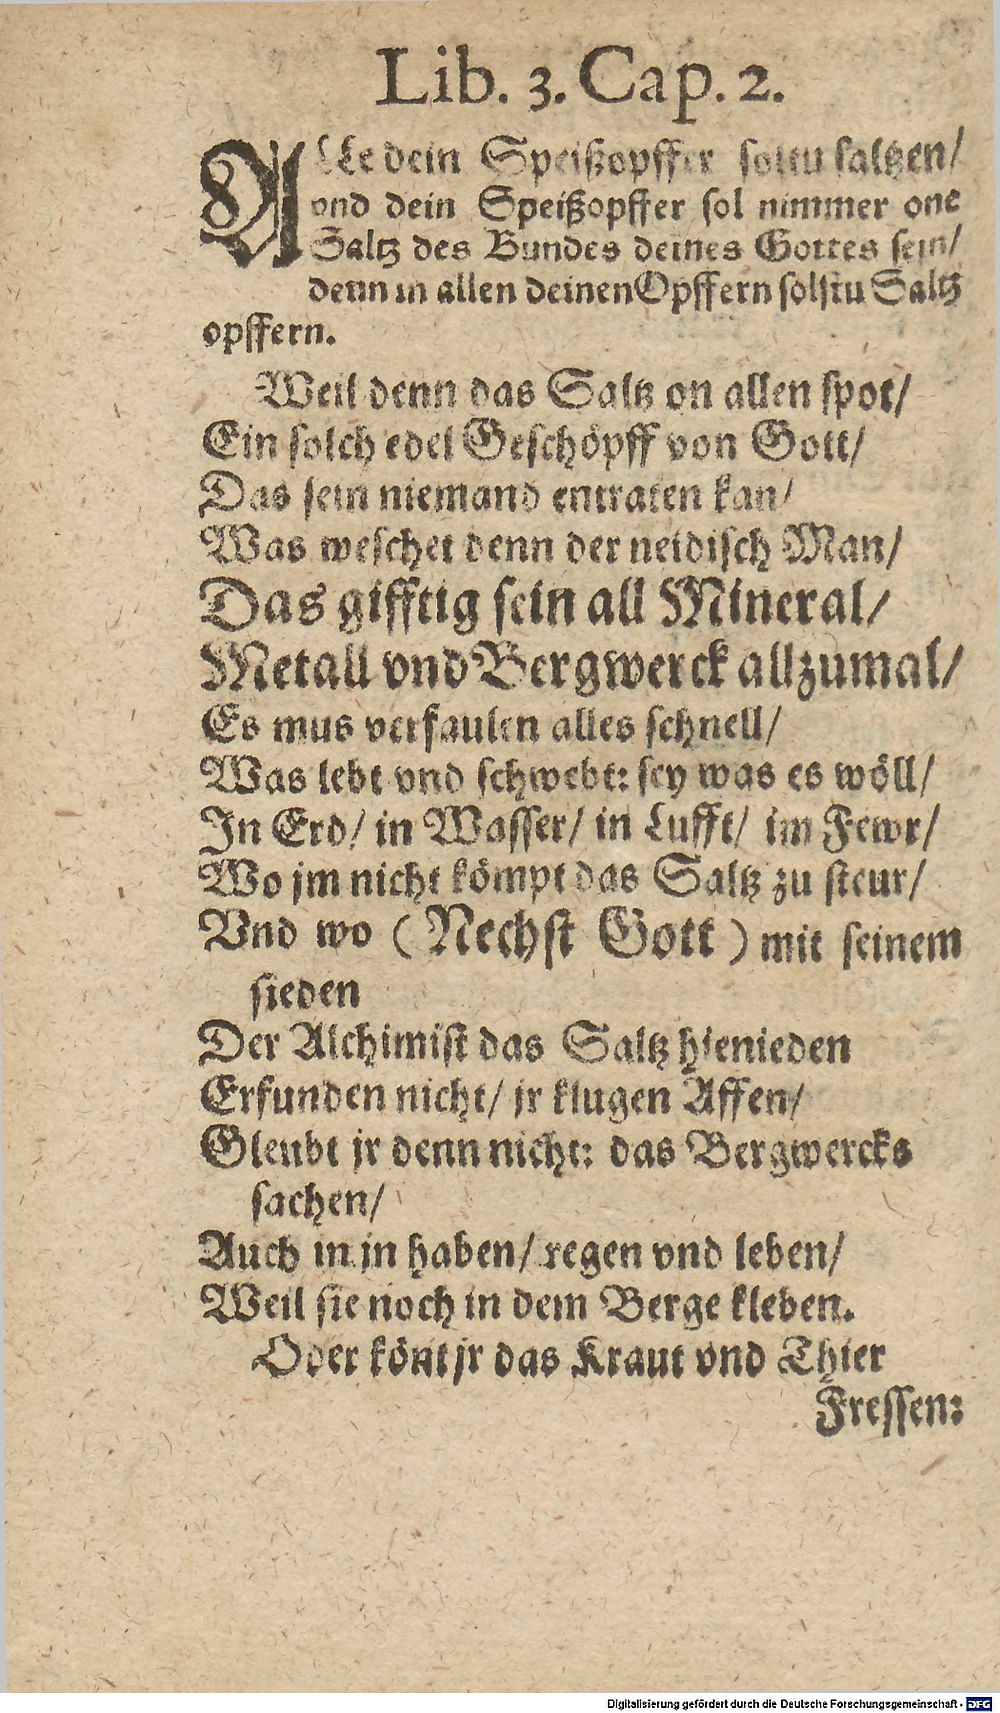 Lib. 3. Cap. 2.
ALLe dein Speißopffer soltu saltzen/
vnd dein Speißopffer sol nimmer one
Saltz des Bundes deines Gottes sein/
denn in allen deinen Opffern solstu Saltz
opffern.
Weil denn das Saltz on allen spot/
Ein solch edel Geschöpff von Gott/
Das sein niemand entraten kan/
Was weschet denn der neidisch Man/
Das gifftig sein all Mineral/
Metall vnd Bergwerck allzumal/
Es mus verfaulen alles schnell/
Was lebt vnd schwebt: sey was es wöll/
In Erd/ in Wasser/ in Lufft/ im Fewr/
Wo jm nicht kömpt das Saltz zu steur/
Vnd wo (Nechst Gott) mit seinem
sieden
Der Alchimist das Saltz hienieden
Erfunden nicht/ jr klugen Affen/
Gleubt jr denn nicht: das Bergwercks
sachen/
Auch in jn haben/ regen vnd leben/
Weil sie noch in dem Berge kleben.
Oder könt jr das Kraut vnd Thier
Fressen:
Digitalisierung gefördert durch die Deutsche Forschungsgemeinschaft - DFG